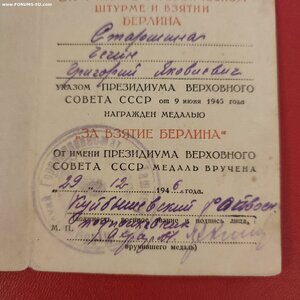 www.FORUMS-SU.com
ШТУРМЕ И ВЗЯТИИ
БЕРЛИНА
Старшина
Григорий Яковлевич
УКАЗОМ "ПРЕЗИДИУМА ВЕРХОВНОГО
СОВЕТА СССР от 9 июня 1945 года
НАГРАЖДЕН МЕДАЛЬЮ
„ЗА ВЗЯТИЕ БЕРЛИНА"
От имени ПРЕЗИДИУМА ВЕРХОВНОГО
СОВЕТА СССР МЕДАЛЬ ВРУЧЕНА
„29" 12 1946 года.
Куйбышевский райвоен
М. П.
вручившего медаль)